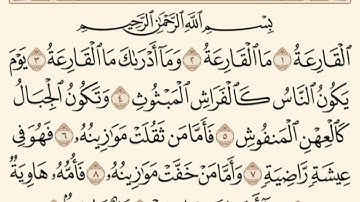 بِسْمِ اللَّهِ الرَّحْمَٰنِ الرَّحِيمِ
الْقَارِعَةُ ١ مَا الْقَارِعَةُ ٢ وَمَا أَدْرَىٰكَ مَا الْقَارِعَةُ ٣ يَوْمَ
يَكُونُ النَّاسُ كَالْفَرَاشِ الْمَبْثُوثِ ٤ وَتَكُونُ الْجِبَالُ
كَالْعِهْنِ الْمَنْفُوشِ ٥ فَأَمَّا مَنْ ثَقُلَتْ مَوَازِينُهُ ٦ فَهُوَ فِي
عِيشَةٍ رَاضِيَةٍ ٧ وَأَمَّا مَنْ خَفَّتْ مَوَازِينُهُ ٨ فَأُمُّهُ هَاوِيَةٌ